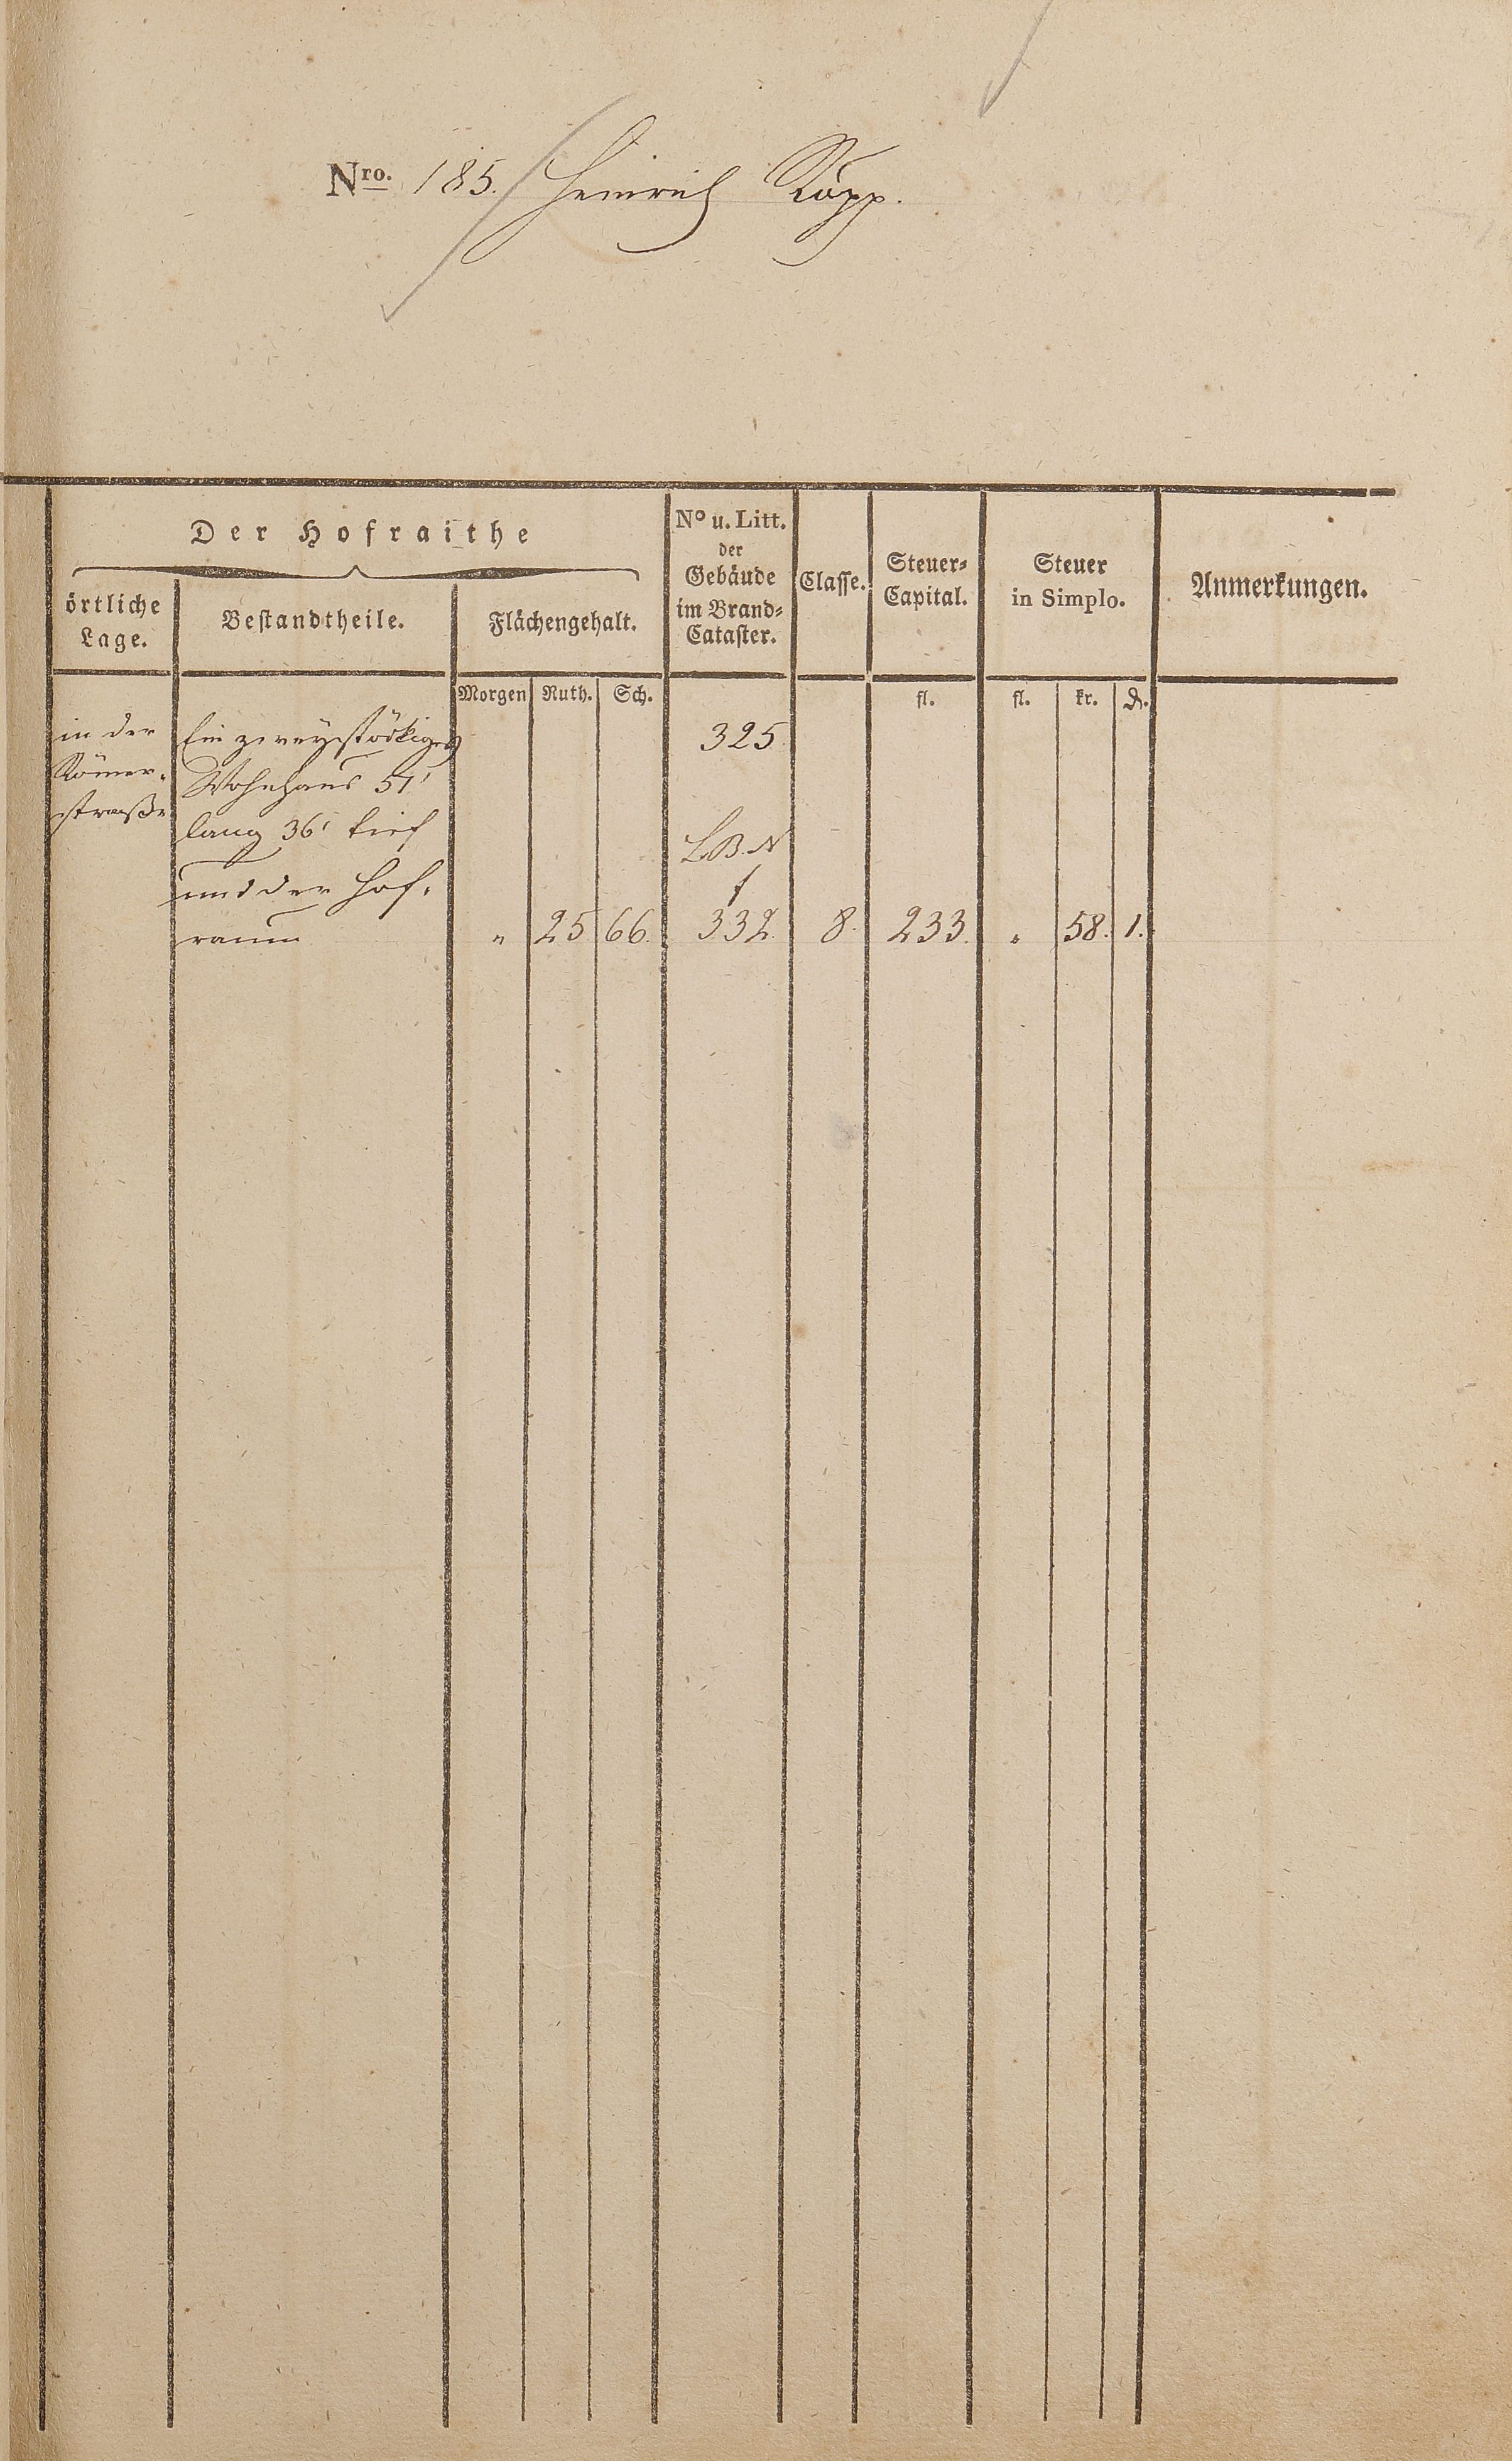 Nro. 185. Heinrich Röpp.
Der Hofraithe
örtliche
Lage.
Bestandtheile.
Flächengehalt.
No u. Litt.
der
Gebäude
im Brand-
Cataster.
Classe.
Steuer-
Capital.
Steuer
in Simplo.
Anmerkungen.
Morgen Ruth. Sch. fl. fl. kr. d.
in der
Römer-
straße
Ein zweystöckiges
Wohnhaus 51'
lang 36' tief
und der Hof-
raum
325
L.B.N
f
" 25 66. 332. 8. 233. " 58. 1.